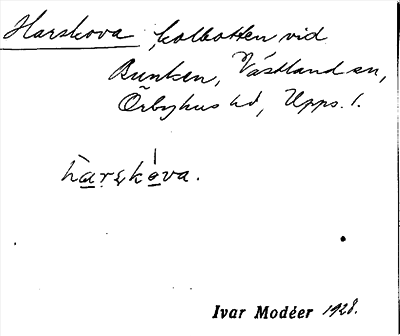 Harskova, kolbotten vid
Bunken, Västland sn,
Örbyhus hd, Upps. l.
hàrskòva.
Ivar Modéer 1928.